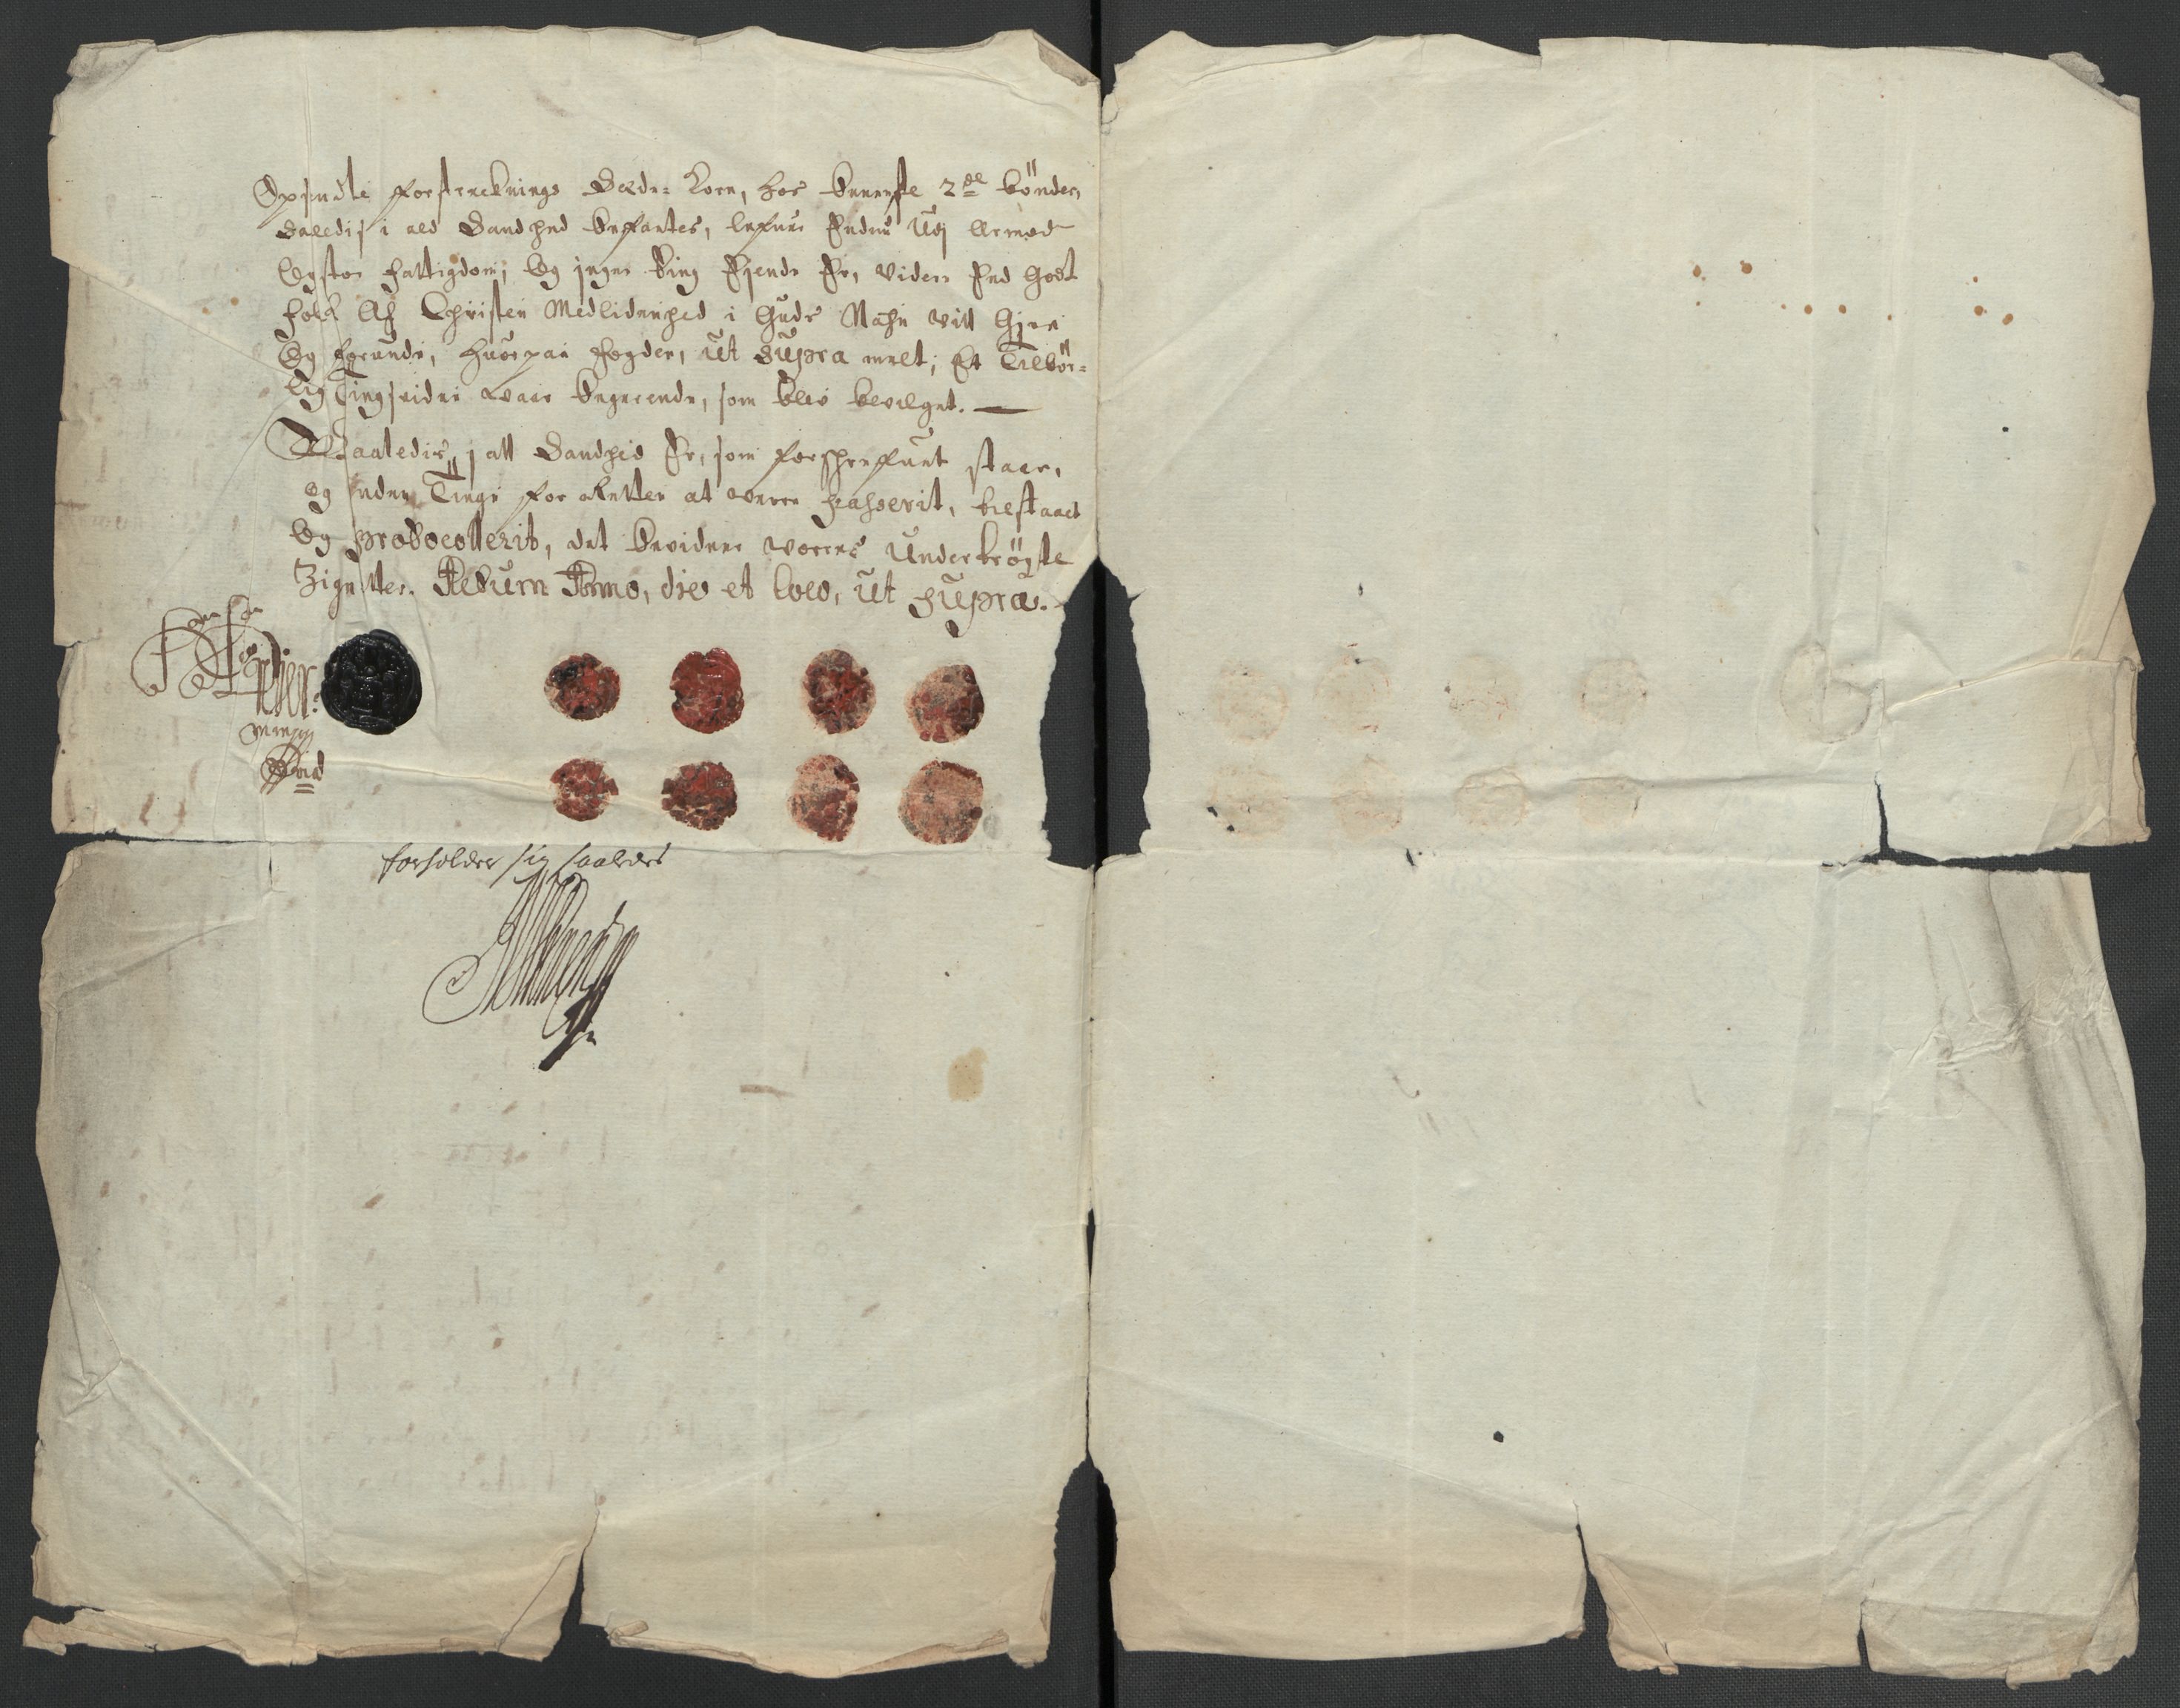 Opsendte forstrecknings Sæde= Korn, hos beneffte 2de bönder,
Saaledis i all Sandhed befantes, lefuer Endnu Udj Armod
Og stor fattigdom, Og jngen ting Ejende Er, videre End Godt
folk Af Christen Medlidenhed i Guds Nafn vill Gifue
Og forunde, huorpaa fogden, ut Supra melt, Et Tilbör=
lig Tingsvidne Waar begierende, som blev bevilget.
Saaledis j all Sandhed Er, som forschrefuet staar,
og inden Tinge for Retten at were Passerit, tilstaaet
Og Protocollerit, det bevidner vorres Undertrögte
Zignetter. Actum Anno, die et loco, ut supra.
mppria
forholder sig saaledes